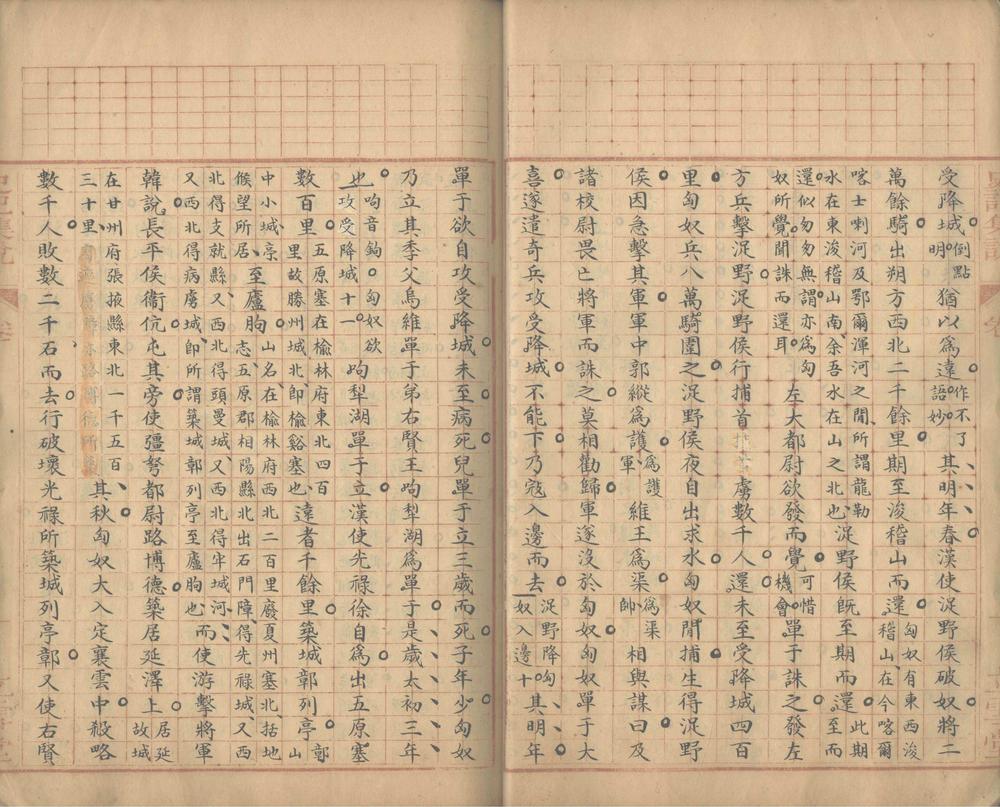 受降城倒點明猶以為遠作不了語妙其明年春漢使浞野侯破奴將二
萬餘騎出朔方西北二千餘里期至浚稽山而還匈奴有東西浚稽山在今喀爾
喀士喇河及鄂爾渾河之閒所謂龍勒水在東浚稽山南余吾水在山之北也浞野侯既至期而還此期至而
還似匆匆無謂亦為匈奴所覺聞誅而還耳左大都尉欲發而覺可惜機會單于誅之發左
方兵擊浞野浞野侯行捕首虜數千人還未至受降城四百
里匈奴兵八萬騎圍之浞野侯夜自出求水匈奴閒捕生得浞野
侯因急擊其軍軍中郭縱為護為護軍維王為渠為渠帥相與謀曰及
諸校尉畏亡將軍而誅之莫相勸歸軍遂沒於匈奴匈奴單于大
喜遂遣奇兵攻受降城不能下乃寇入邊而去浞野降匈奴入邊十其明年
單于欲自攻受降城未至病死兒單于立三歲而死子年少匈奴
乃立其季父烏維單于弟右賢王呴犁湖為單于是歲太初三年
也呴音鉤匈奴欲攻受降城十一呴犁湖單于立漢使光祿徐自為出五原塞
數百里五原塞在榆林府東北四百里故勝州城北即榆谿塞也遠者千餘里築城鄣列亭鄣山
中小城亭候望所居至廬朐山名在榆林府西北二百里廢夏州塞北括地志五原郡相陽縣北出石門障得光祿城又西
北得支就縣又西北得頭曼城又西北得牢城河又西北得病虜城即所謂築城鄣列亭至廬朐也而使游擊將軍
韓說長平侯衛伉屯其旁使彊弩都尉路博德築居延澤上居延故城
在甘州府張掖縣東北一千五百三十里其秋匈奴大入定襄雲中殺略
數千人敗數二千石而去行破壞光祿所築城列亭鄣又使右賢